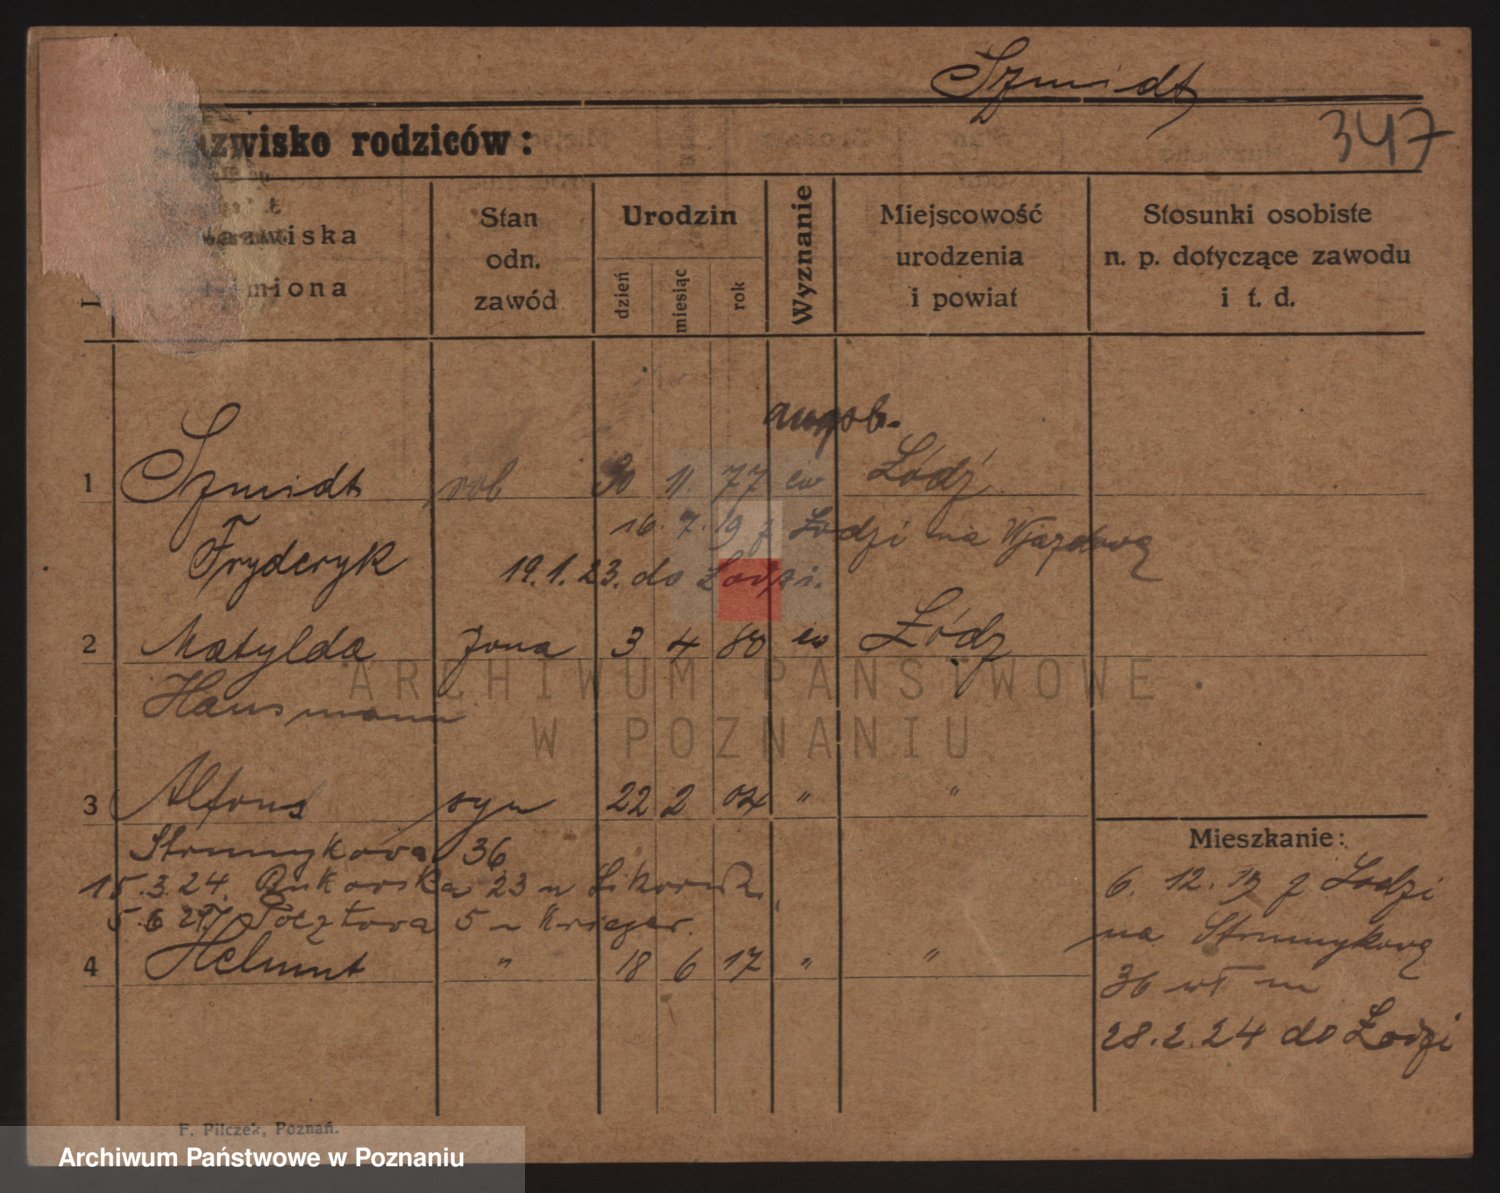 Szmidt
347
azwisko rodziców:
azwiska
miona
Stan
odn.
zawód
Urodzin
dzień
miesiąc
rok
Wyznanie
Miejscowość
urodzenia
i powiat
Stosunki osobiste
n. p. dotyczące zawodu
i t. d.
augsb.
1 Szmidt rob 30 11. 77 ew Łódź
16. 7. 19 z Łodzi na Wjazdową
Fryderyk
19.1.23. do Łodzi.
2 Matylda żona 3 4 80 ew Łódź
Hausmann
3 Alfons syn 22 2 04 " "
Strumykowa 36
15.3.24. Bukowska 23 u
5.6 Pocztowa 5 u Krieger.
4 Helmut " 18 6 17 " "
Mieszkanie:
6. 12. 19 z Łodzi
na Strumykową
36 wł m
28.2.24 do Łodzi
F. Pilczek, Poznań.
ARCHIWUM PAŃSTWOWE
W POZNANIU
Archiwum Państwowe w Poznaniu